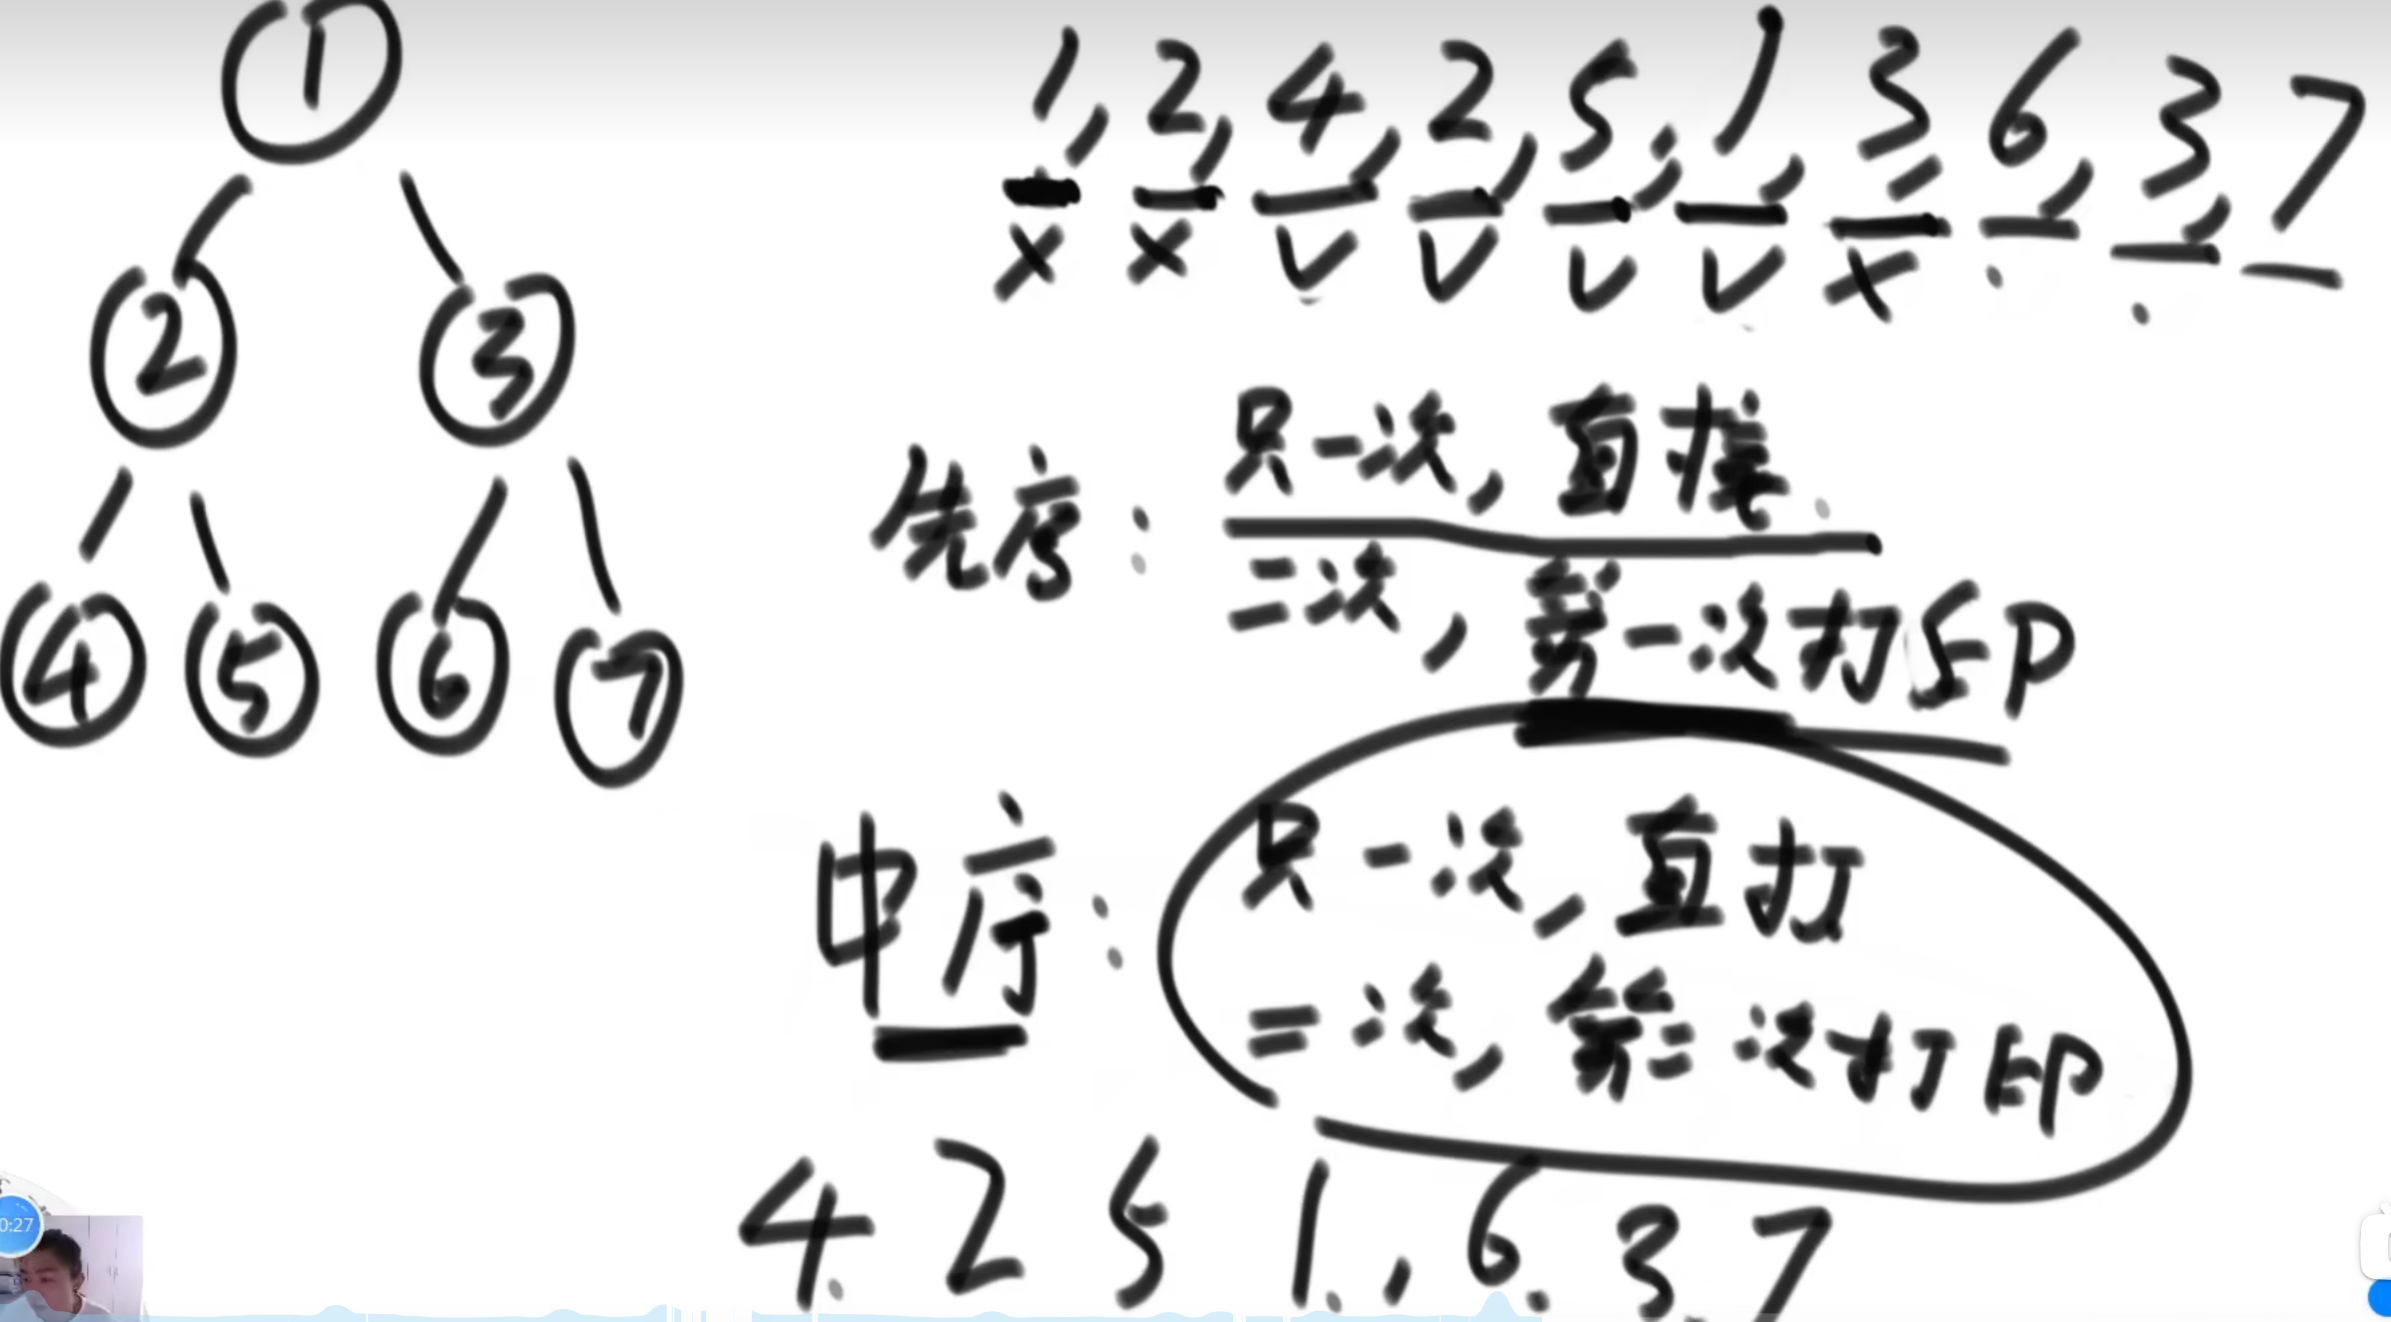 1
2 3
4 5 6 7
1, 2, 4, 2, 5, 1, 3, 6, 3, 7
x x v v v v x
先序: 只一次, 直接
二次, 第一次打印
中序: 只一次, 直打
二次, 第二次打印
4 2 5 1, 6 3 7
0:27